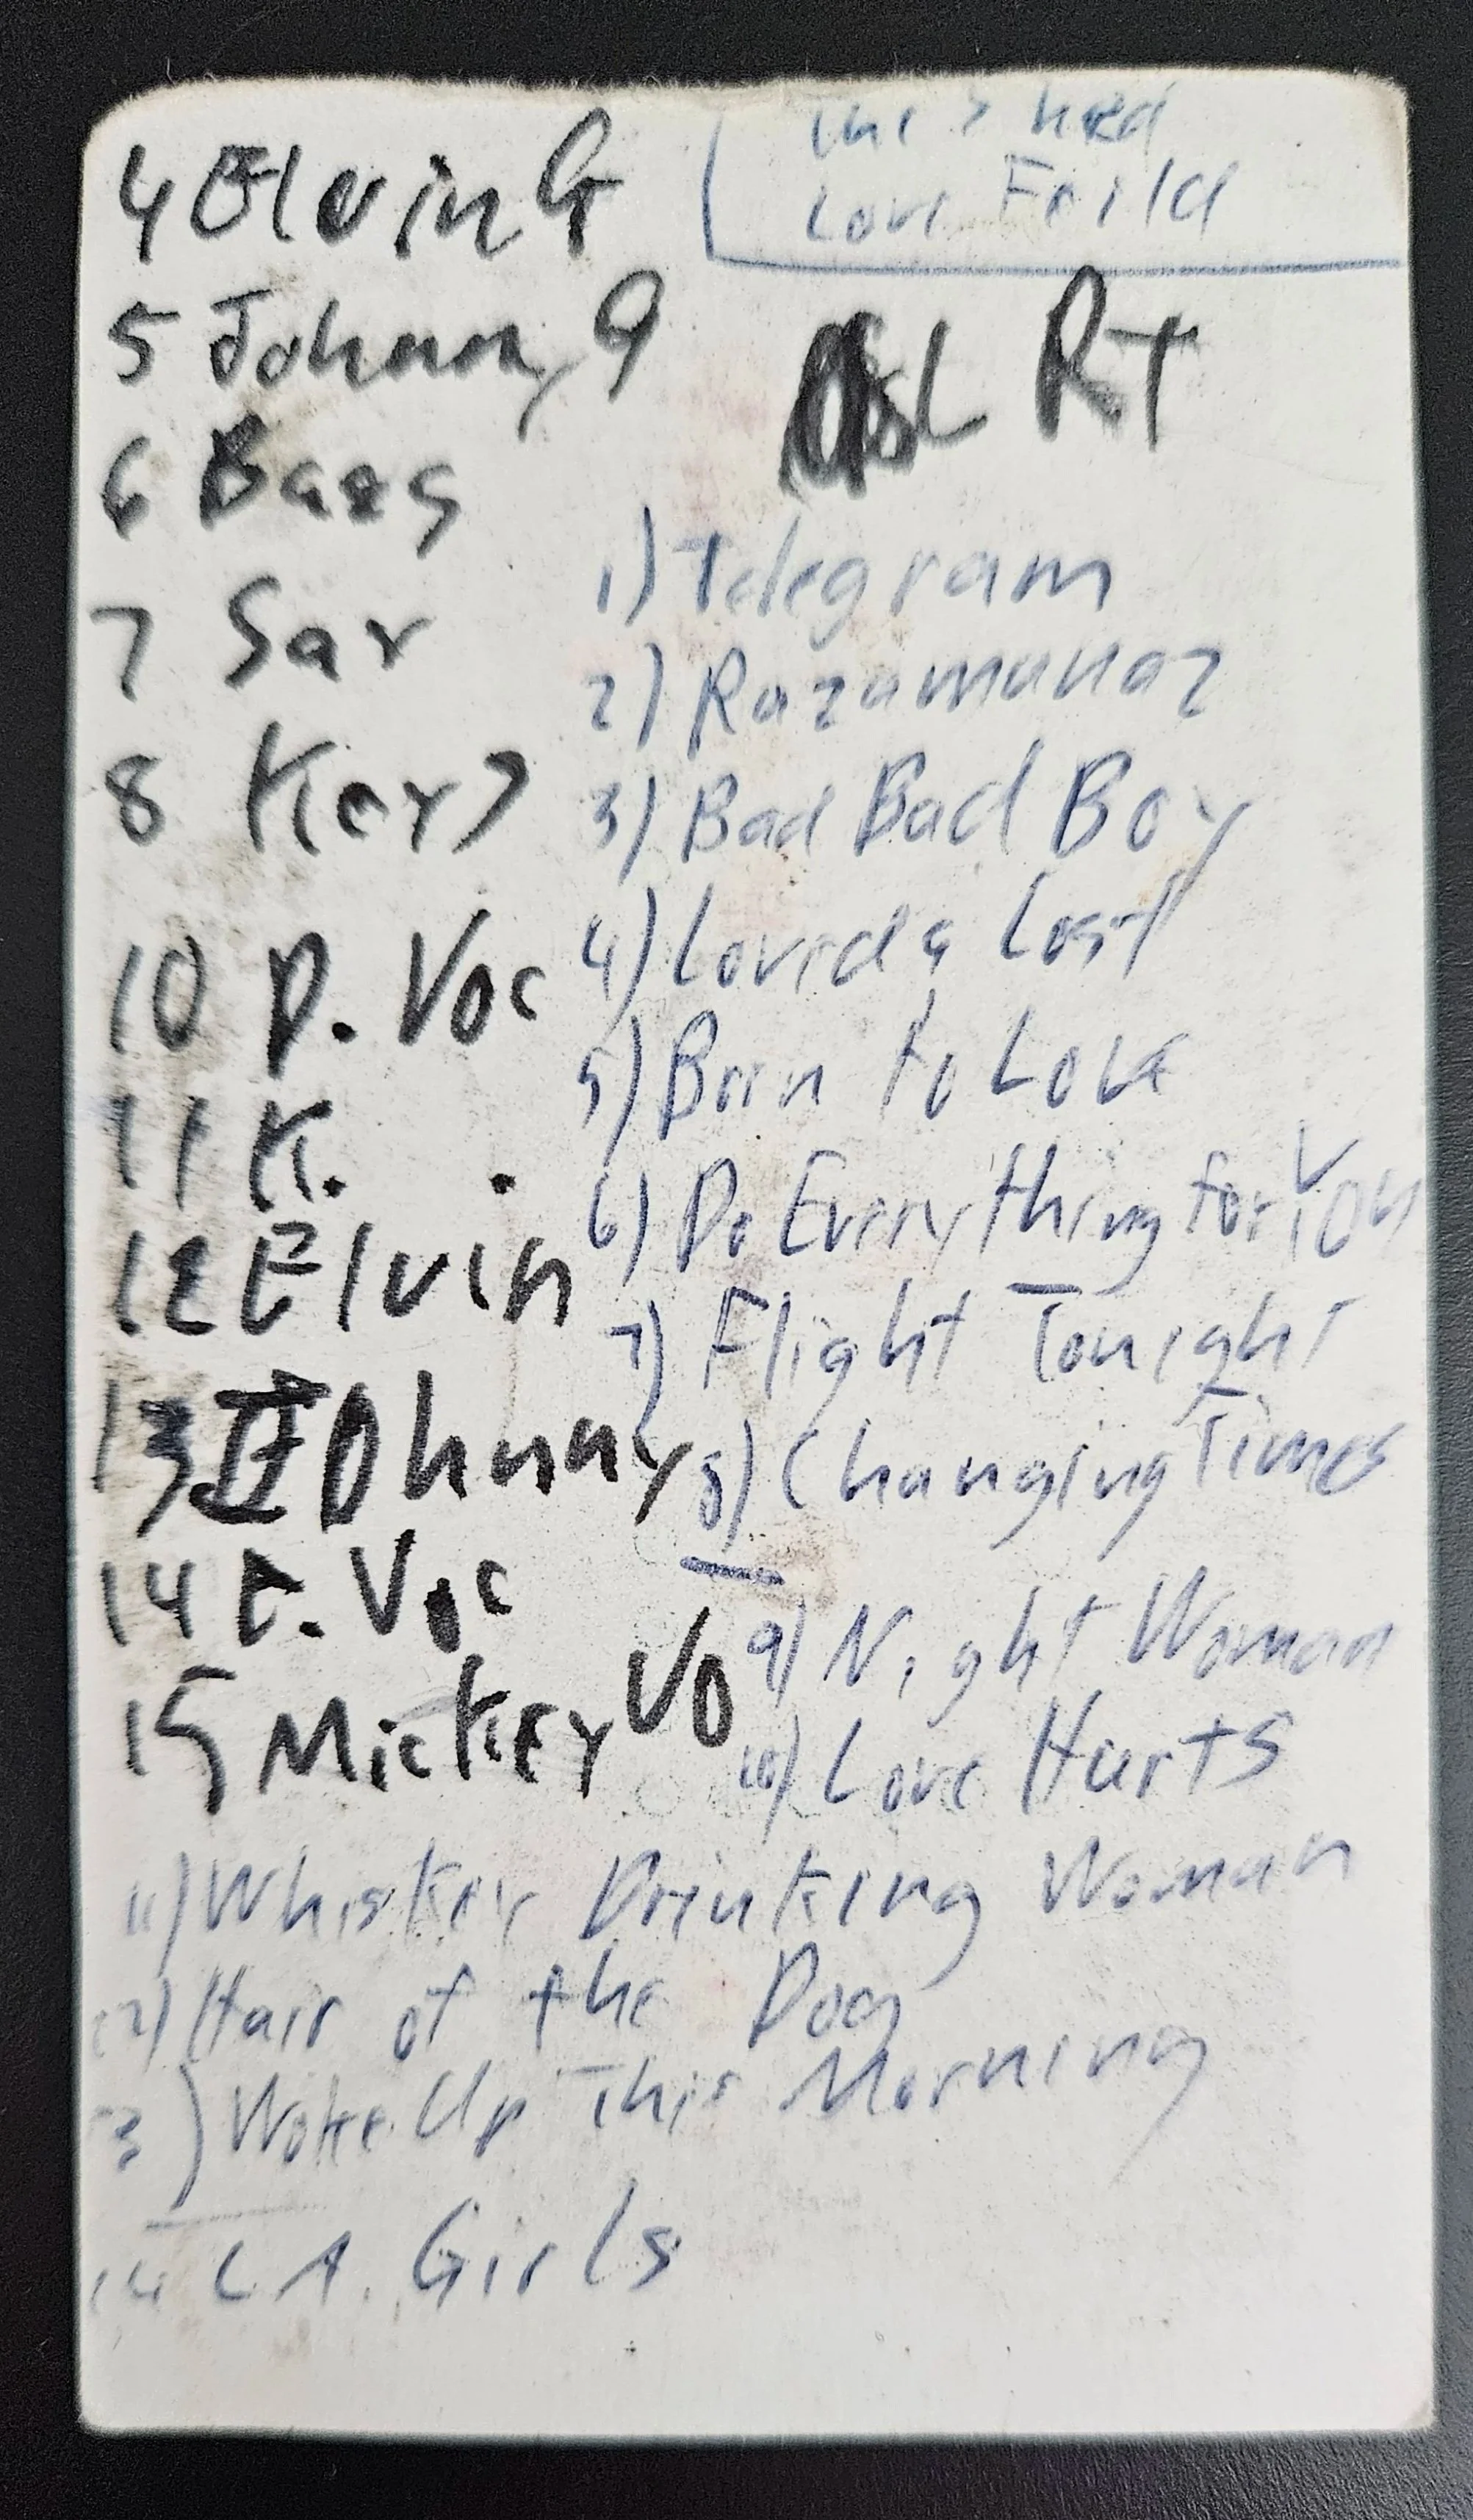 The Shed
Love Feild
4 Elvin G
5 Johnny G
6 Bass
7 Sax
8 Keys
10 D. Voc
11 K. .
12 Elvin
13 Johnny
14 E. Voc
15 Mickey VO
L RT
1) Telegram
2) Razamanaz
3) Bad Bad Boy
4) Loved & Lost
5) Born to Love
6) Do Everything for You
7) Flight Tonight
8) Changing Times
9) Night Woman
10) Love Hurts
11) Whiskey Drinking Woman
12) Hair of the Dog
13) Woke Up This Morning
14 L A. Girls